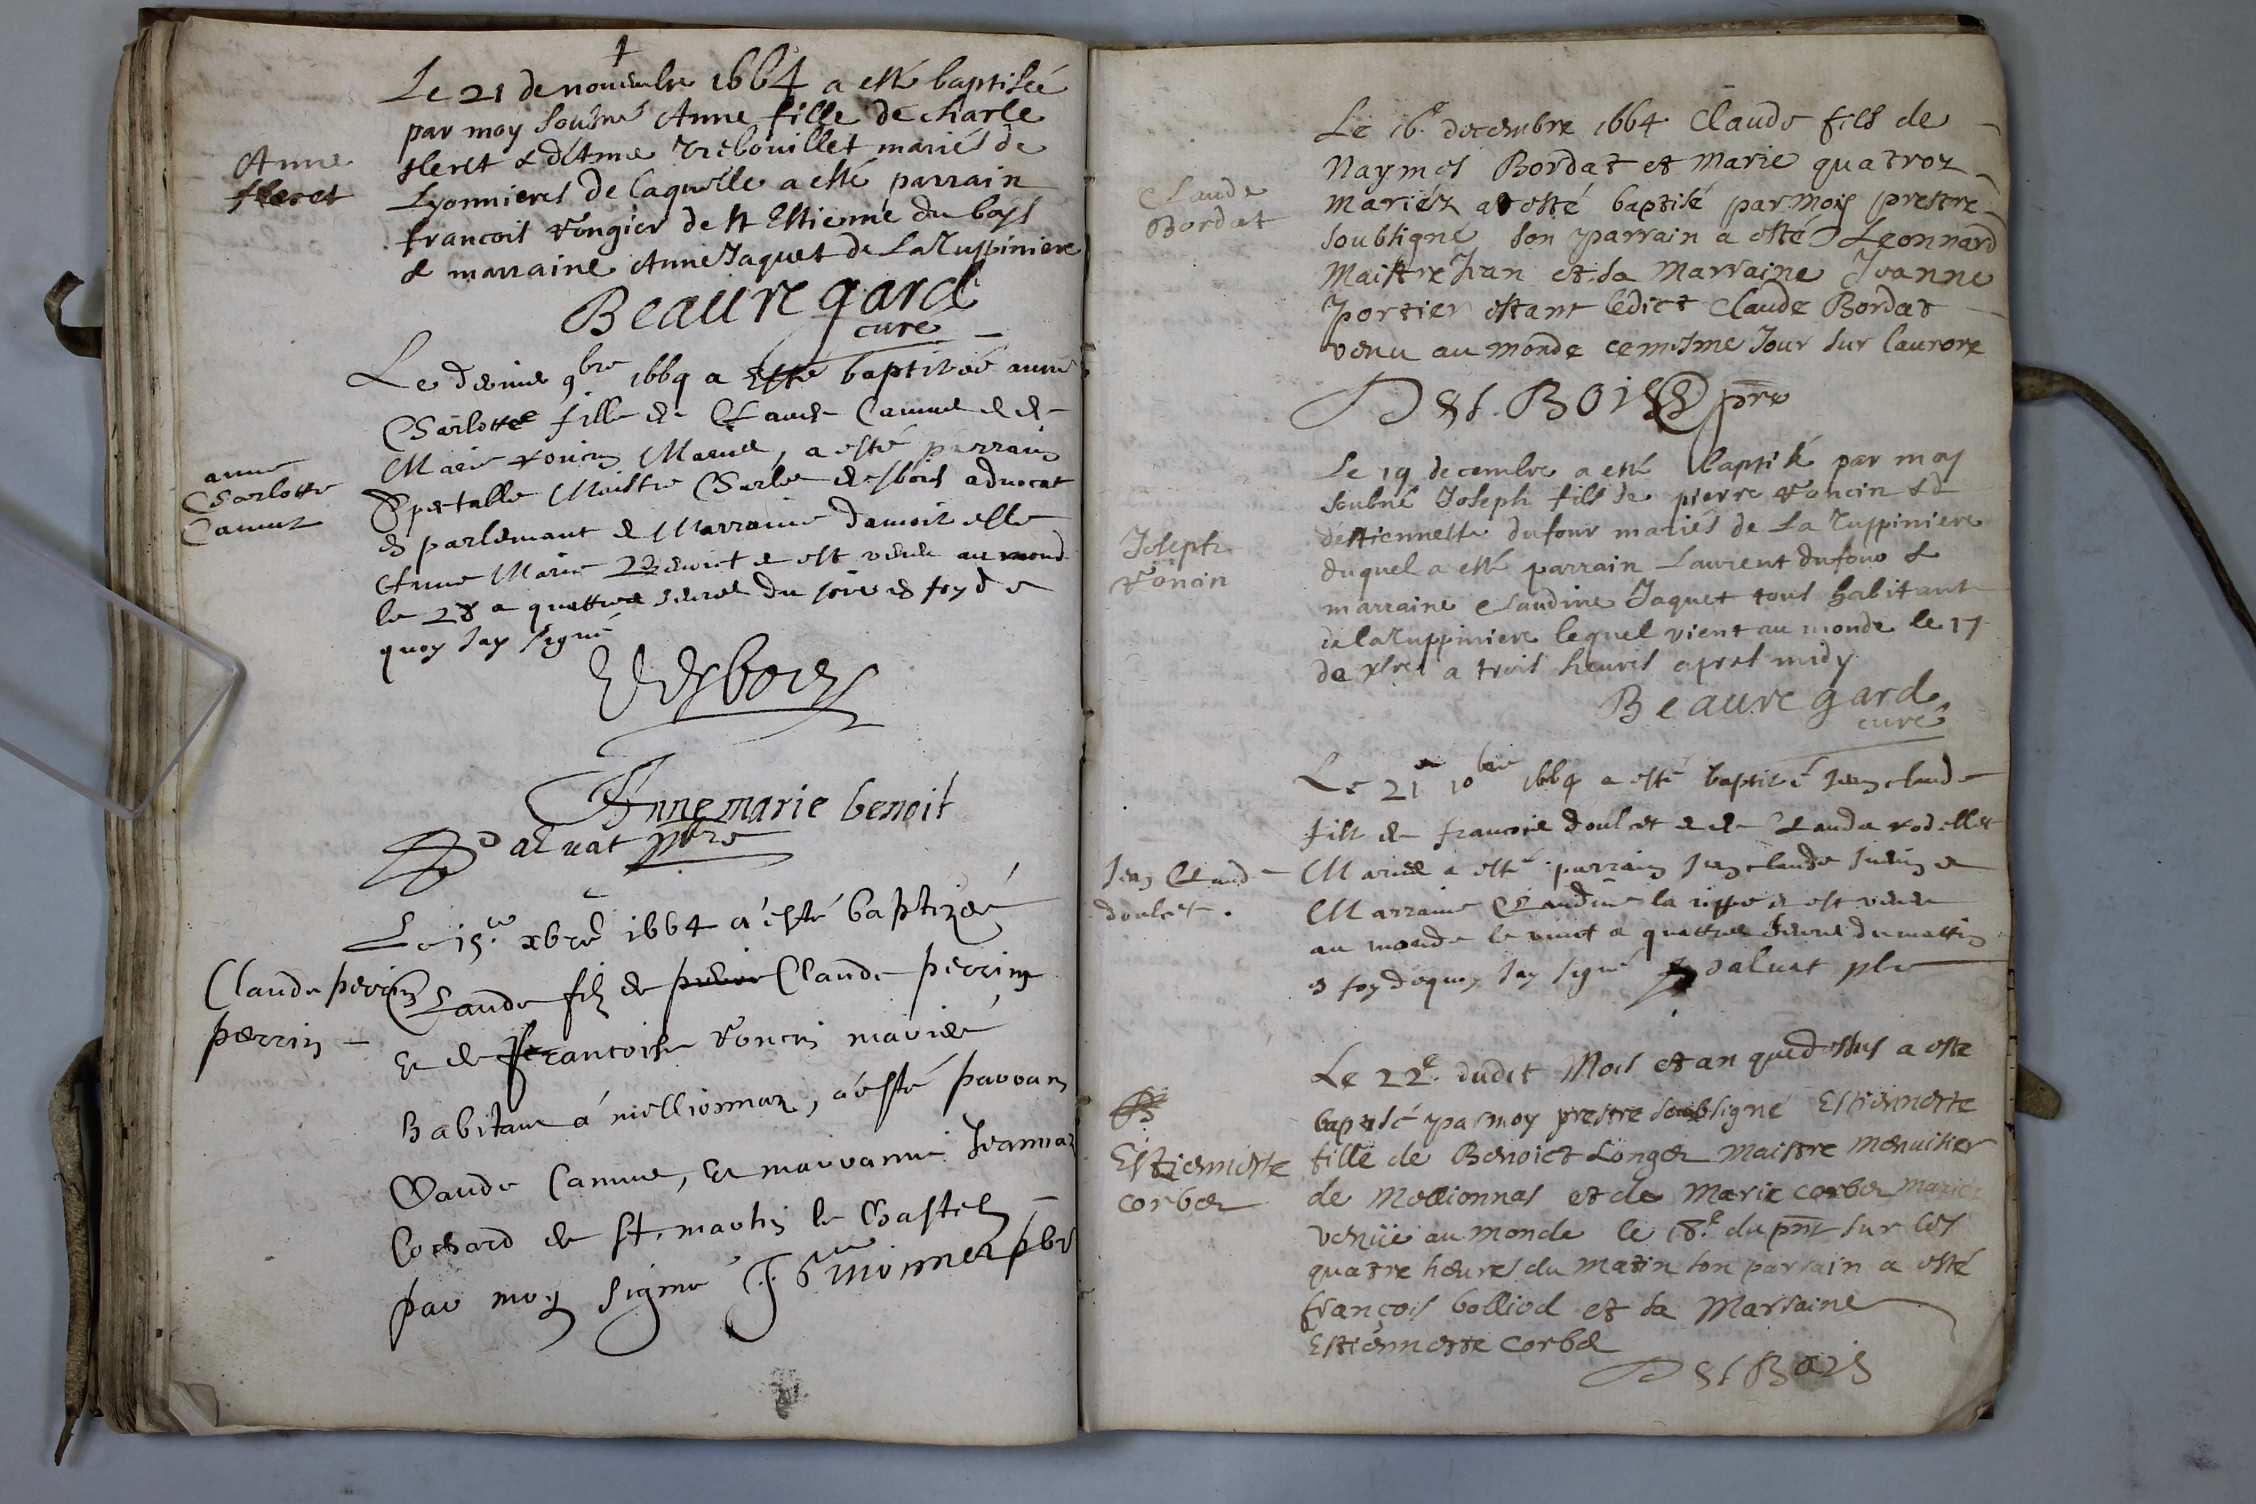 Le 21 de novembre 1664 a esté baptiseé
par moy soubsné Anne fille de charle
fleret & d'Anne Trebouillet mariés de
Lyonnieres de laquelle a esté parrain
francois Rongier de st Estienne du boys
& marraine Anne Jaquet de La Tuppiniere
Beauregard
curé
Anne
fleret
Le dernier 9bre 1664 a esté baptizéé anne
Charlotte fille de Claude Camus et de
Marie Roncin Mariés, a esté parrain
Spectable Maistre Charles desbois advocat
en parlemant et Marraine damoiselle
Anne Marie Benoict et est venue au monde
le 28 a quattre heures du soir en foy de
quoy Jay signé
anne
Charlotte
Camus
CDesbois
Anne marie benoit
Dalvat pbre
Le 15.e xbre 1664 a esté baptizé
Claude filz de Claude perrin
et de francoise Roncin mariés
habitans á meillionnaz, a esté parrain
Claude Camus, et marrainne Jeanne
Cochard de st. martin le Chastel
par moy signé
Claude perrin
perrin
Le 16.e decembre 1664 Claude fils de
Naymos Bordat et Marie quatroz
mariéz a esté baptisé par moy prestre
soubsigné son parrain a esté Leonnard
Maistre Jean et sa Marraine Jeanne
Portier estant ledict Claude Bordat
venu au monde ce mesme Jour sur l'aurore
DesBois pre
Claude
Bordat
Le 19 decembre a esté baptisé par moy
soubné Joseph fils de pierre Roncin & d
d'estiennette dufour mariés de La Tuppiniere
duquel a esté parrain Laurent dufour &
marraine Claudine Jaquet tous habitant
de la Tuppiniere lequel vient au monde le 17
de xbre a trois heures apres midy
Beauregard
curé
Joseph
Roncin
Le 21 10bre 1664 a esté baptizé Jean claude
fils de francois doulcet et de Claude Rodellet
Mariés a esté parrain Jean claude Juenin et
Marraine Claudine la rippe et est venu
au monde le vint a quattre heures du mattin
en foy dequoy Jay signé Dalvat pbre
Jean Claude
doulcet.
Le 22.e dudit Mois et an que dessus a esté
baptisé par moy prestre soubsigné Estiennette
fille de Benoict Longet maistre menuisier
de Mellionnas et de Marie corbet mariez
venüe au monde le 18.e du pnt sur les
quatre heures du matin son parrain a esté
françois bolliod et sa Marraine
Estiennette corbet
DesBois
Estiennette
corbet